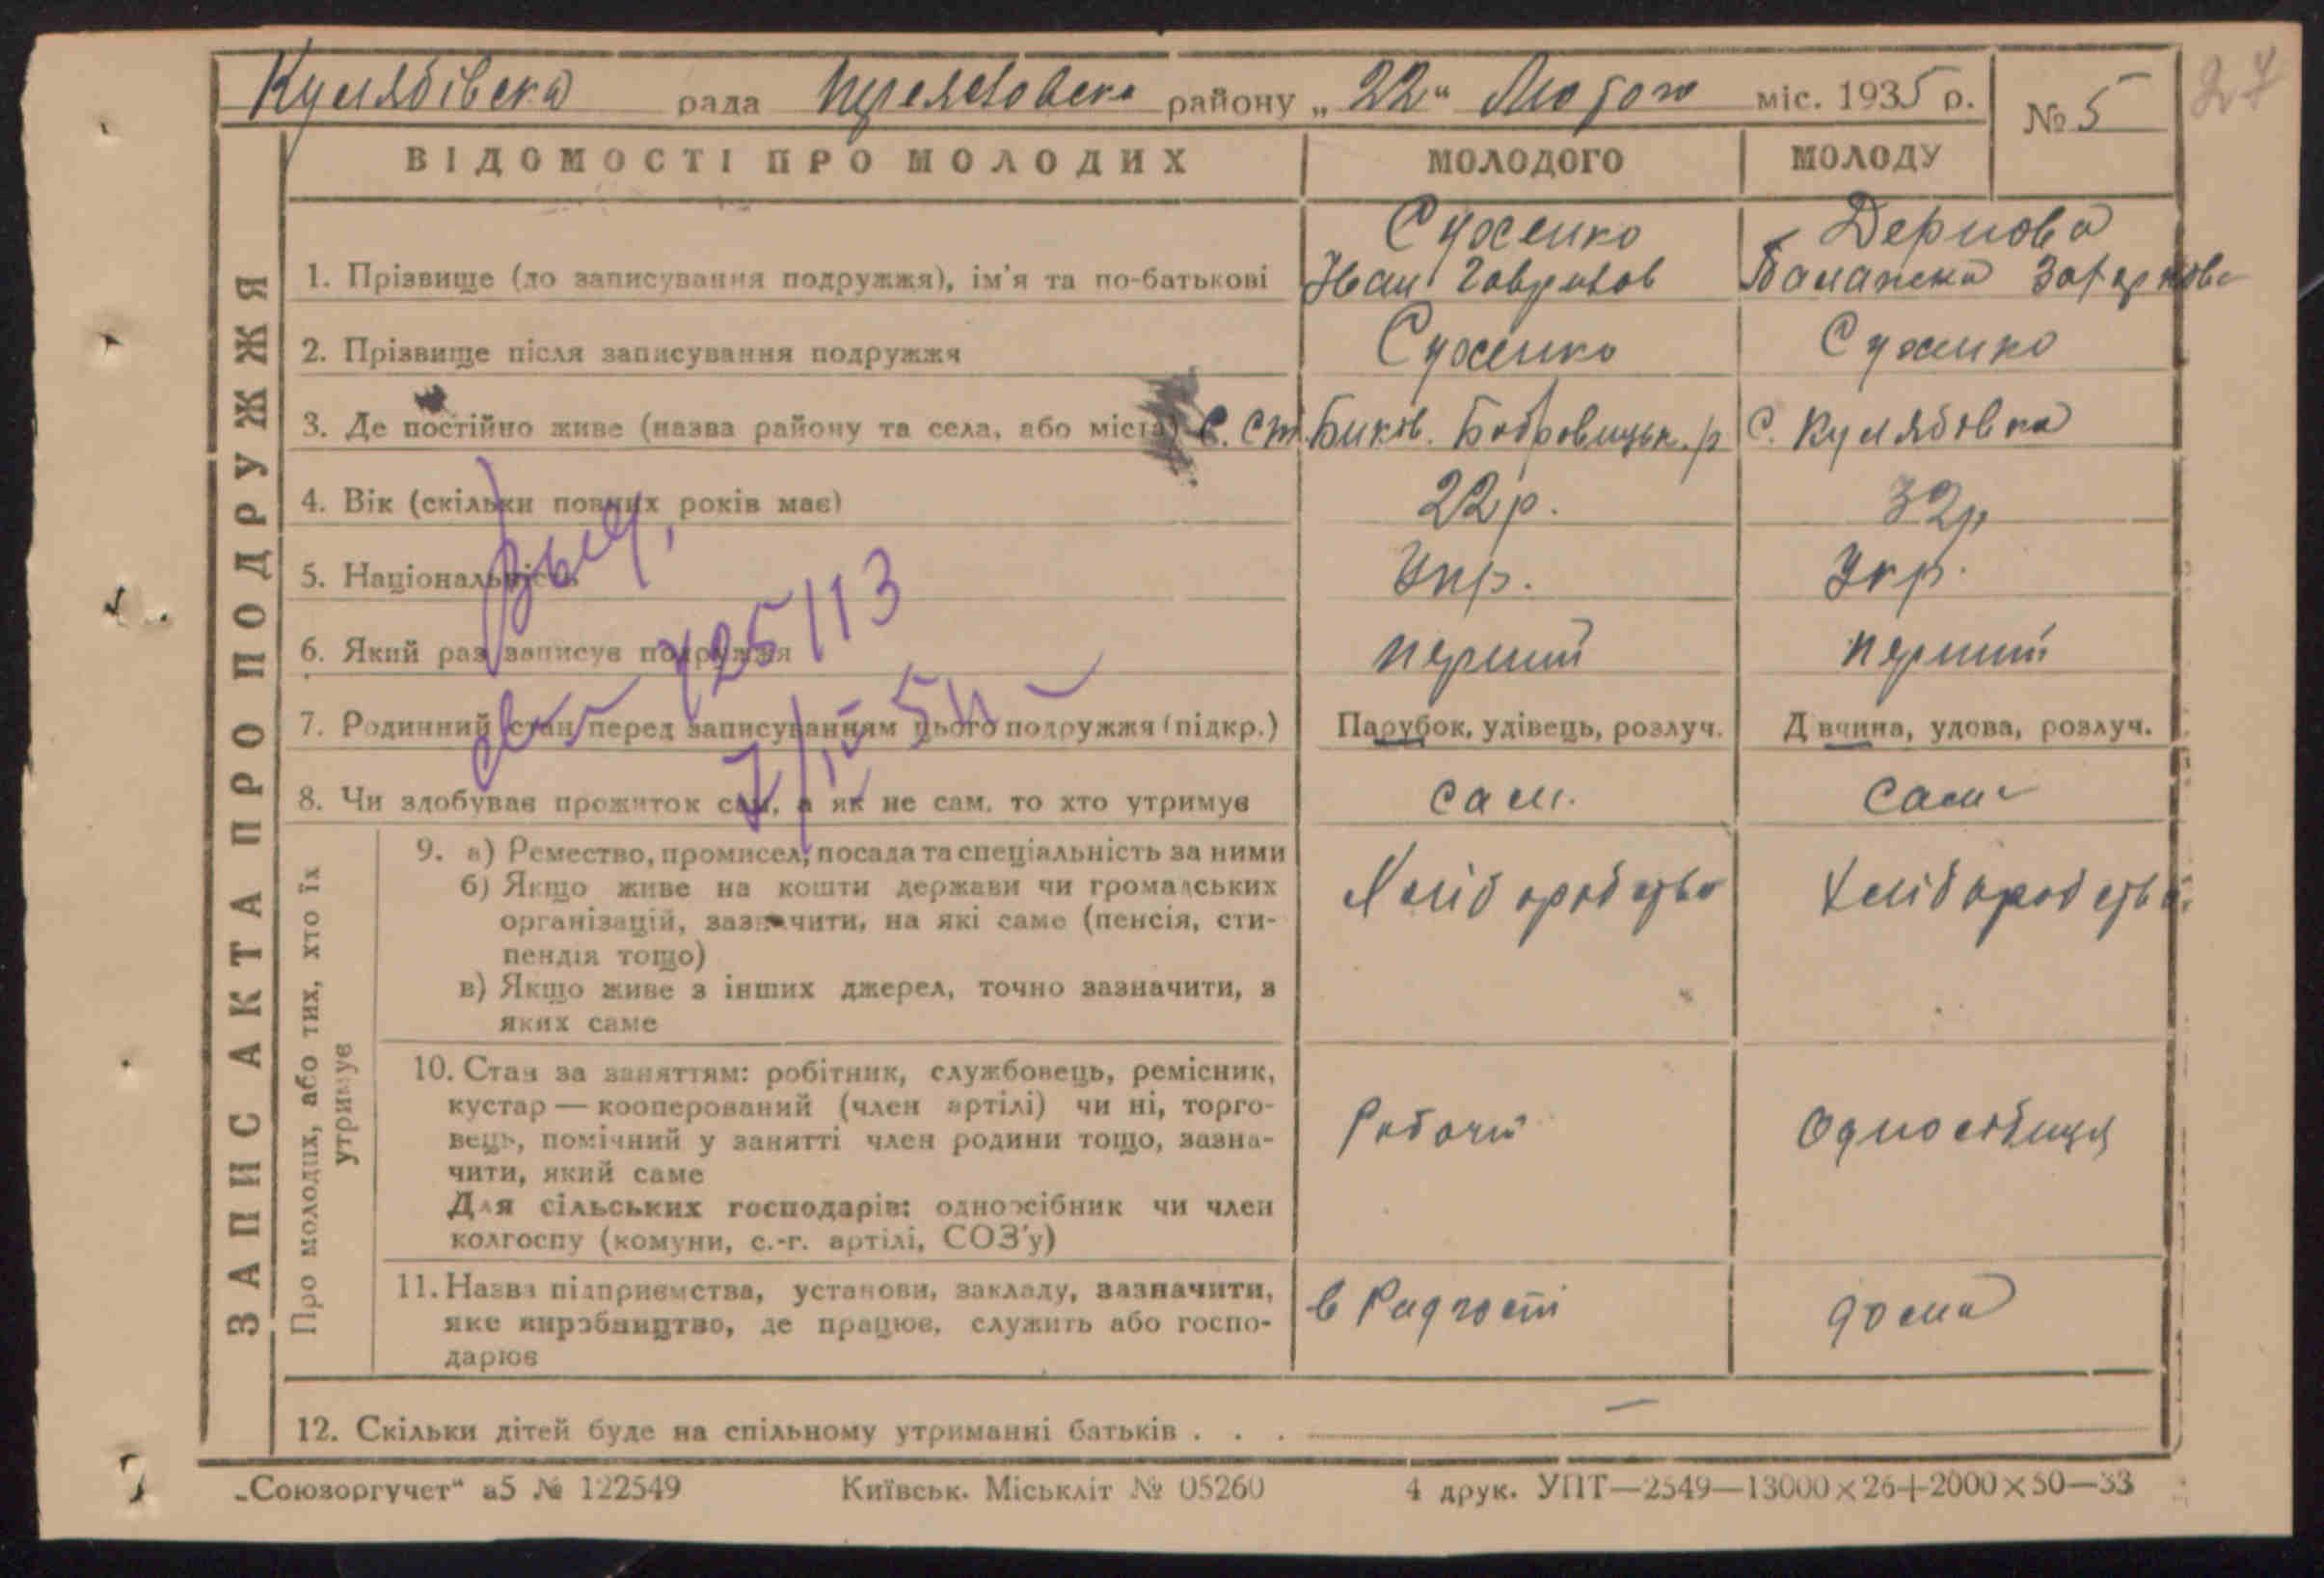 Кулябівська рада Переяславська району „22“ Лютого міс. 1935 р. № 5
27
ВІДОМОСТІ ПРО МОЛОДИХ МОЛОДОГО МОЛОДУ
ЗАПИС АКТА ПРО ПОДРУЖЖЯ
1. Прізвище (до записування подружжя), ім'я та по-батькові Сухенко Іван Гаврилов Дернова Захаркова
2. Прізвище після записування подружжя Сухенко Сухенко
3. Де постійно живе (назва району та села, або міста) С. Ст. Биків. Бобровицьк. р С. Кулябовка
4. Вік (скільки повних років має) 22 р. 32 р
5. Національність Укр. Укр.
6. Який раз записує подружжя перший перший
7. Родинний стан перед записуванням цього подружжя (підкр.) Парубок, удівець, розлуч. Дівчина, удова, розлуч.
8. Чи здобуває прожиток сам, а як не сам, то хто утримує сам. сама
Про молодих, або тих, хто їх
утримує
9. а) Ремество, промисел, посада та спеціальність за ними Хліборобство Хліборобство
б) Якщо живе на кошти держави чи громадських
організацій, зазначити, на які саме (пенсія, сти-
пендія тощо)
в) Якщо живе з інших джерел, точно зазначити, з
яких саме
10. Стан за заняттям: робітник, службовець, ремісник,
кустар — кооперований (член артілі) чи ні, торго-
вець, помічний у занятті член родини тощо, зазна- Робочий Одноосібниця
чити, який саме
Для сільських господарів: одноосібник чи член
колгоспу (комуни, с.-г. артілі, СОЗ'у)
11. Назва підприємства, установи, закладу, зазначити, в Радгоспі дома
яке виробництво, де працює, служить або госпо-
дарює
12. Скільки дітей буде на спільному утриманні батьків . . . —
„Союзоргучет“ а5 № 122549 Київськ. Міськліт № 05260 4 друк. УПТ—2549—13000×26+2000×50—33